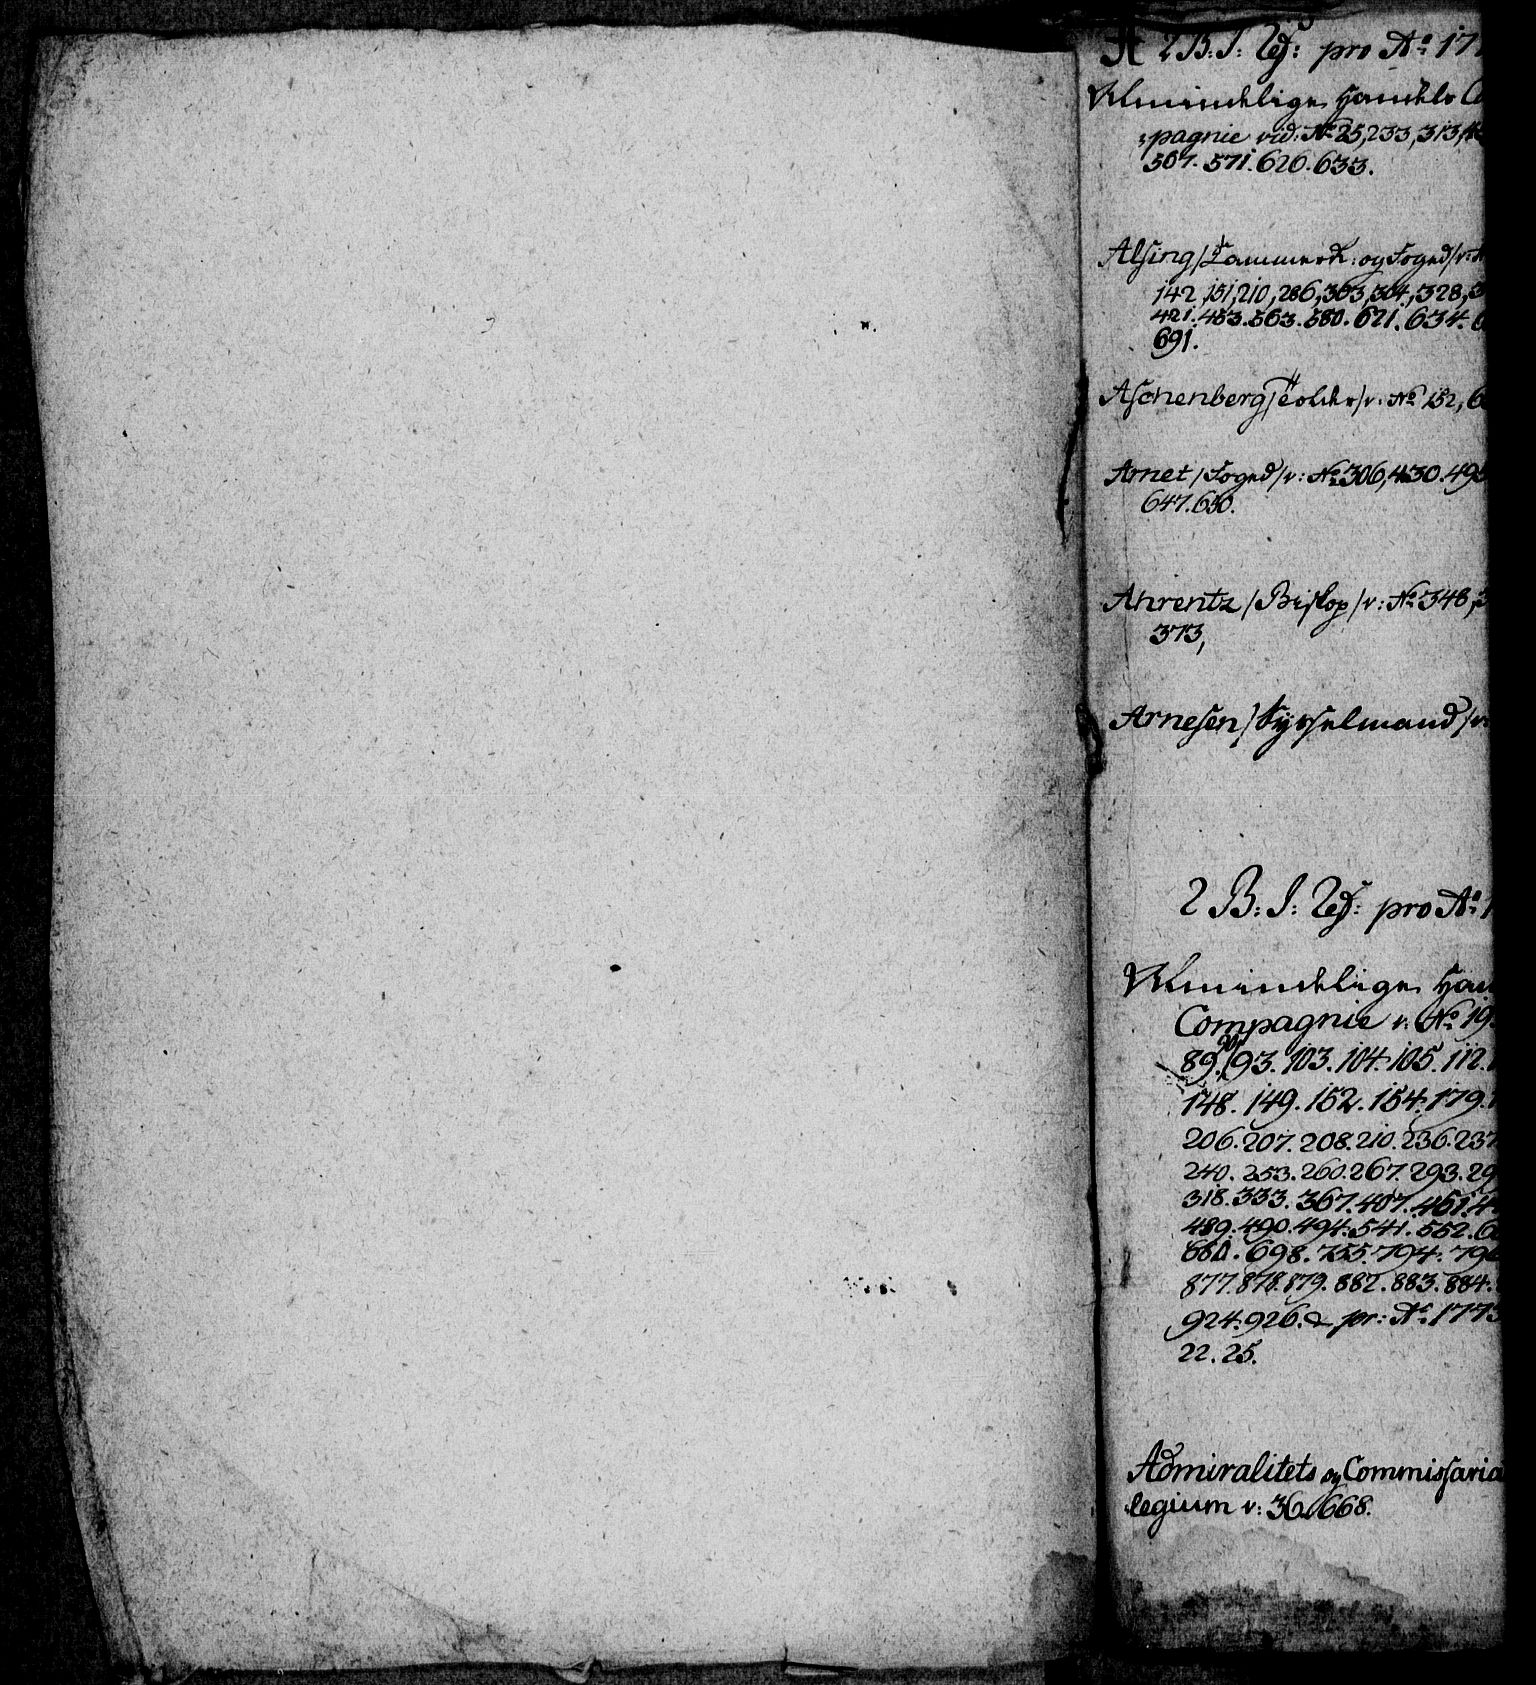 A 2 B: I: pro Ao 177
Almindelige Handels
pagnie vid: No 25, 233, 313,
507. 571. 626. 633.
Alsing / Cammerr: og Foged / v:
142, 151, 210, 286, 303, 304, 328,
421. 453. 563. 580. 621. 634.
691.
Aschenberg / v: No 152,
Arnet / Foged / v: No 306, 430. 495
647. 650.
Ahrentz / Biskop / v: No 348,
373,
Arnesen / Sysselmand / v:
2 B: I: pro Ao 1
Almindelige Han
Compagnie v: No 19
89. 93. 103. 104. 105. 112.
148. 149. 152. 154. 179.
206. 207. 208. 210. 236. 237
240. 253. 260. 267. 293. 29
318. 333. 367. 407. 461.
489. 490. 494. 541. 552.
698. 755. 794. 796
877. 878. 879. 882. 883. 884.
924. 926. & pr: Ao 1773
22. 25.
Admiralitets og Commissaria
legium v: 36. 668.